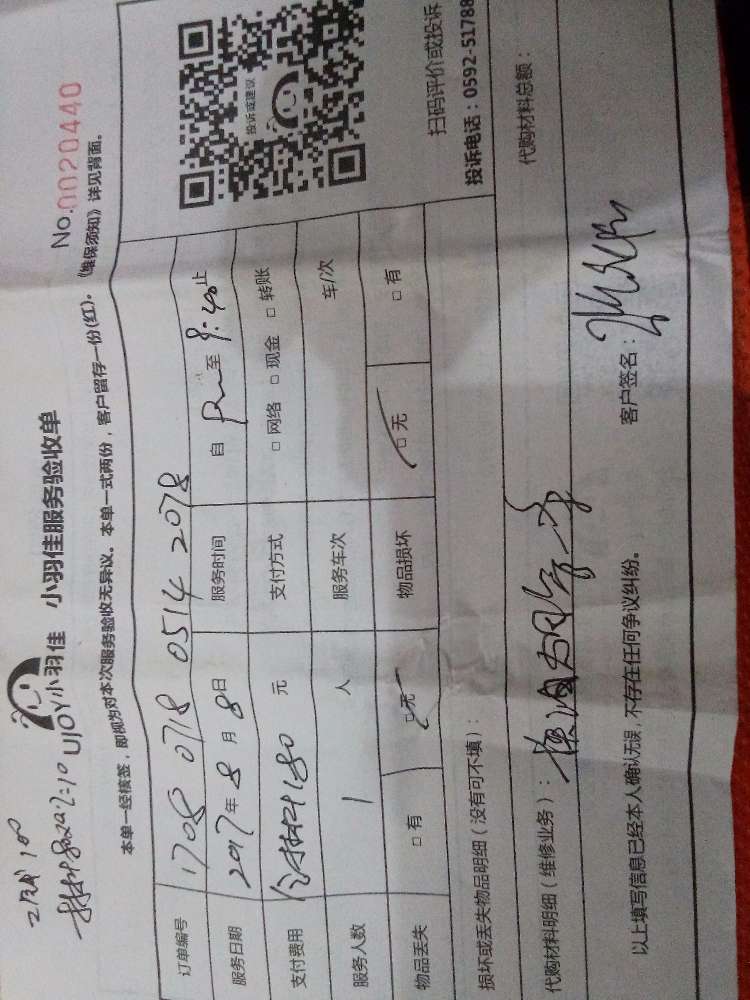 工时100
UJOY小羽佳 小羽佳服务验收单
No.0020440
本单一经核签，即视为对本次服务验收无异议。本单一式两份，客户留存一份(红)。《维保须知》详见背面。
订单编号 1708 0718 0514 2078
服务日期 2017年8月8日 服务时间 自 至 9:40止
支付费用 含材料180元 支付方式 □网络 □现金 □转账
服务人数 1 人 服务车次 车/次
物品丢失 □有 □无 物品损坏 □无 □有
投诉或建议
扫码评价或投诉
投诉电话：0592-51788
损坏或丢失物品明细（没有可不填）：
代购材料明细（维修业务）： 代购材料总额：
以上填写信息已经本人确认无误，不存在任何争议纠纷。 客户签名：